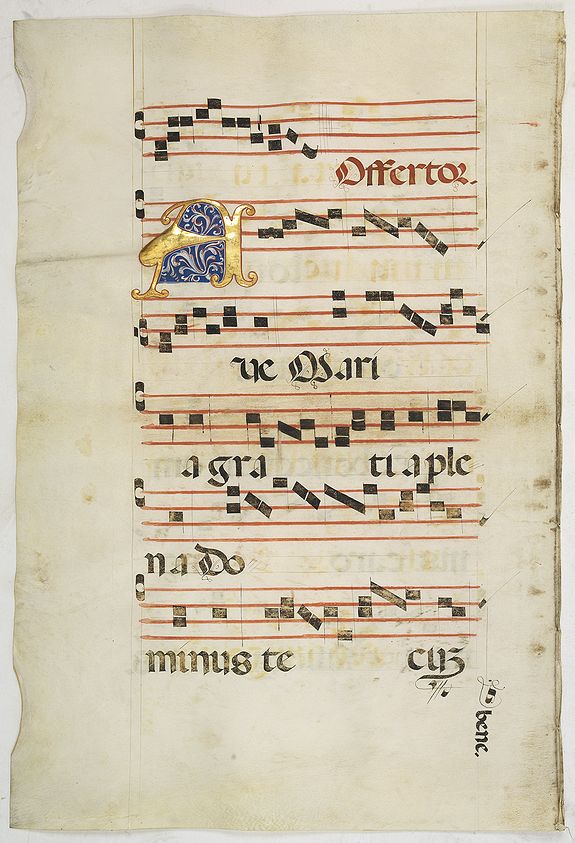 Offertor.
A
ve Mari
a gra ti a ple
na Do
minus te cuz
bene.